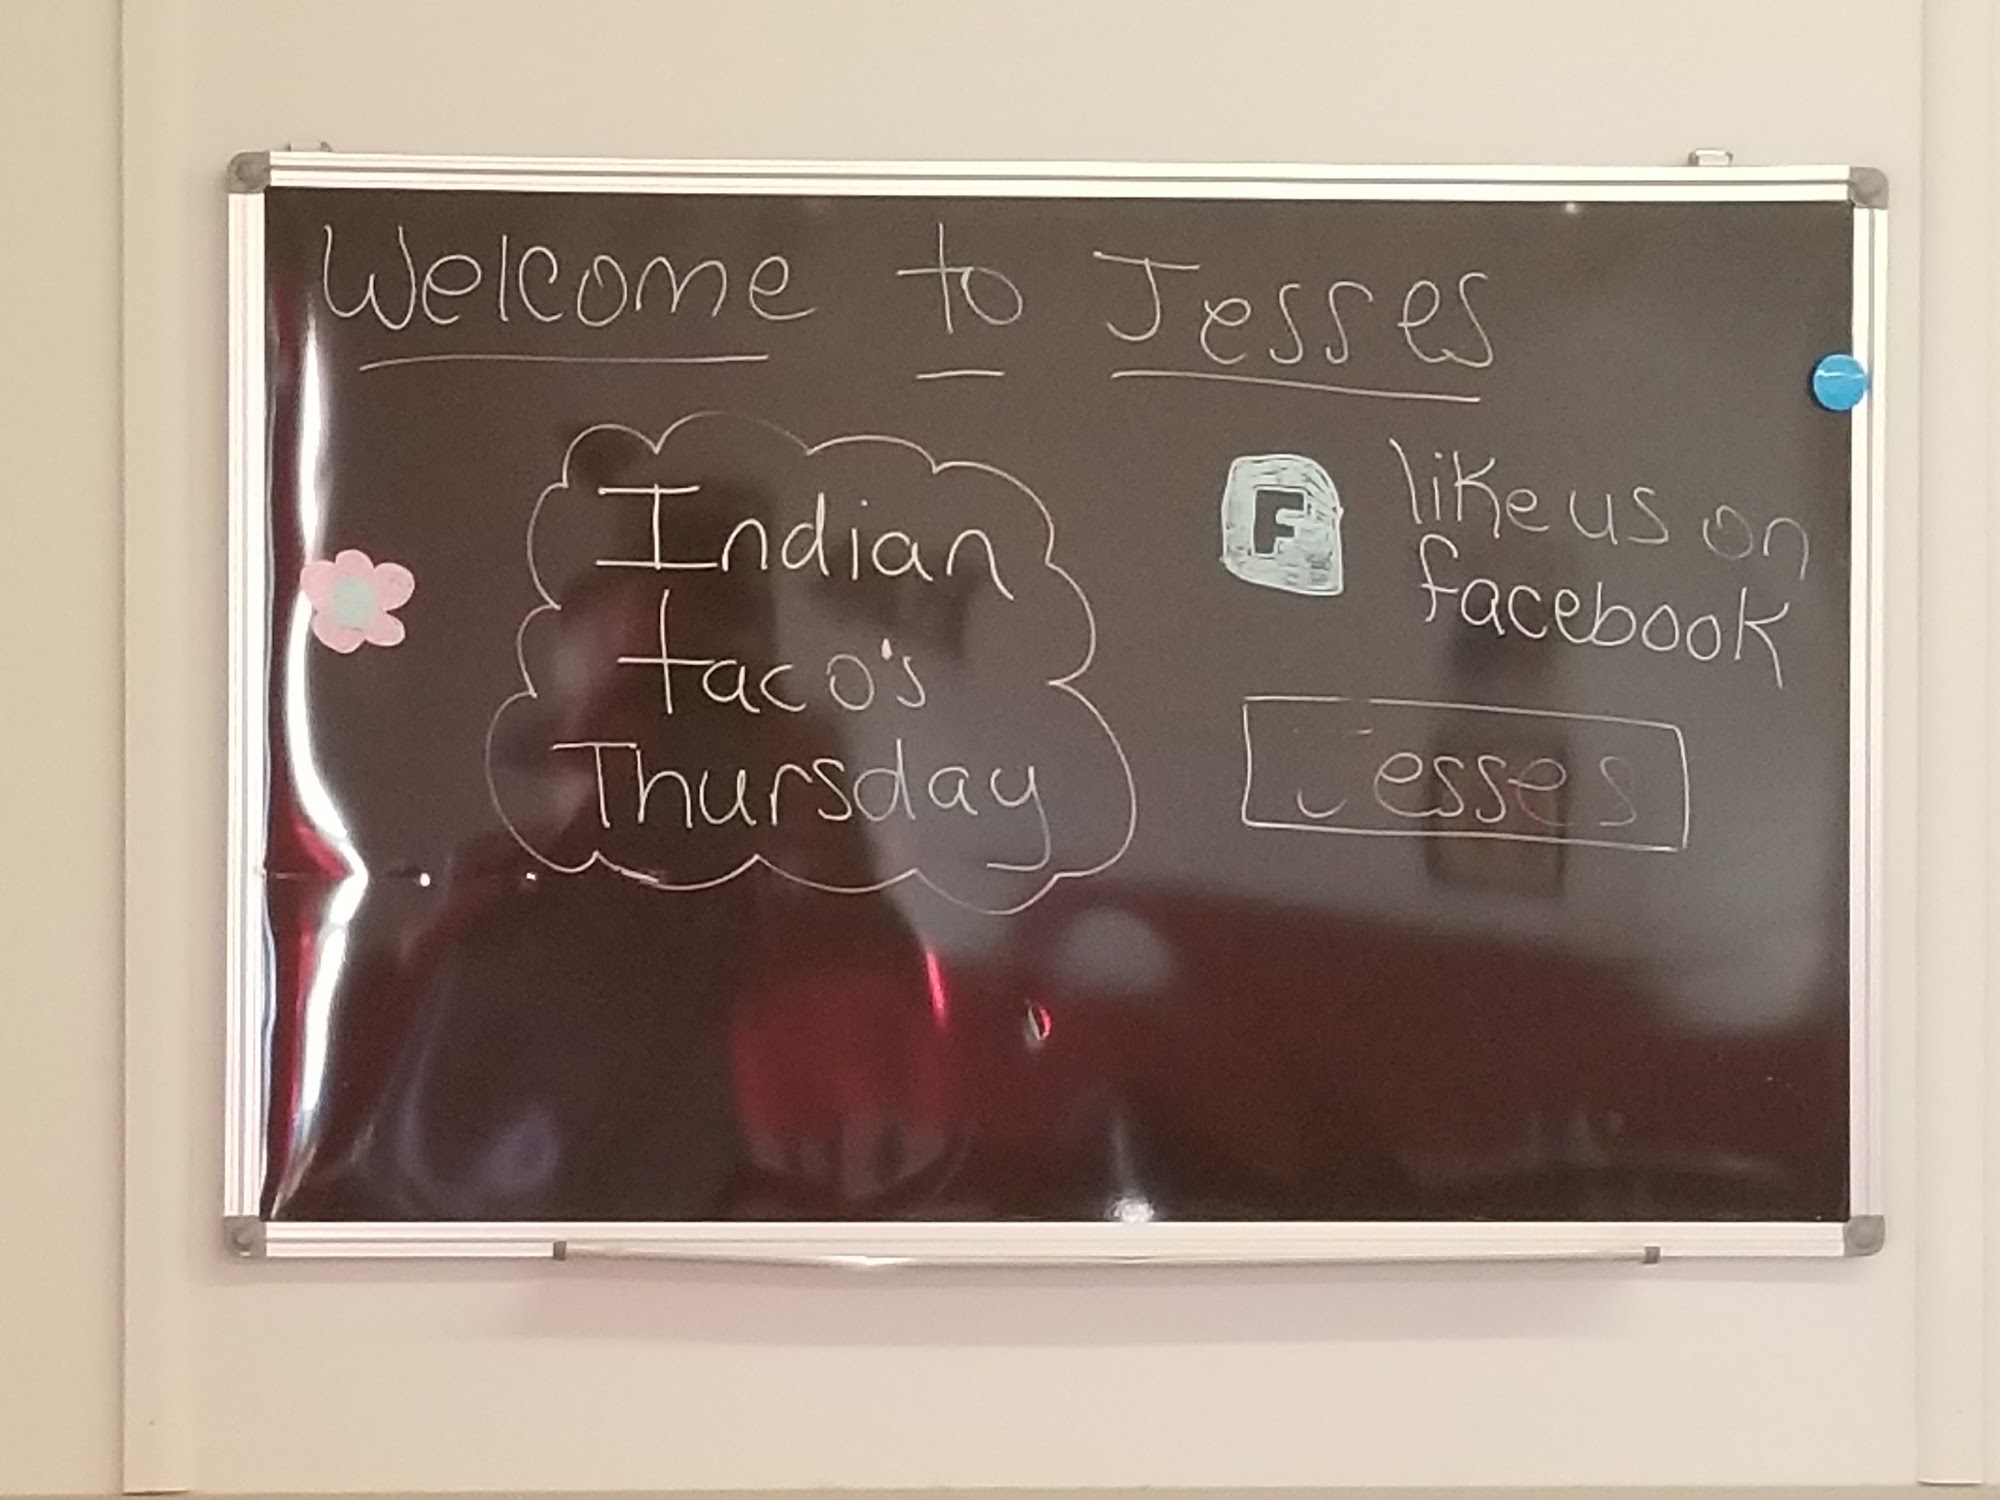 Welcome to Jesses
Indian
taco's
Thursday
F
like us on
facebook
Jesses